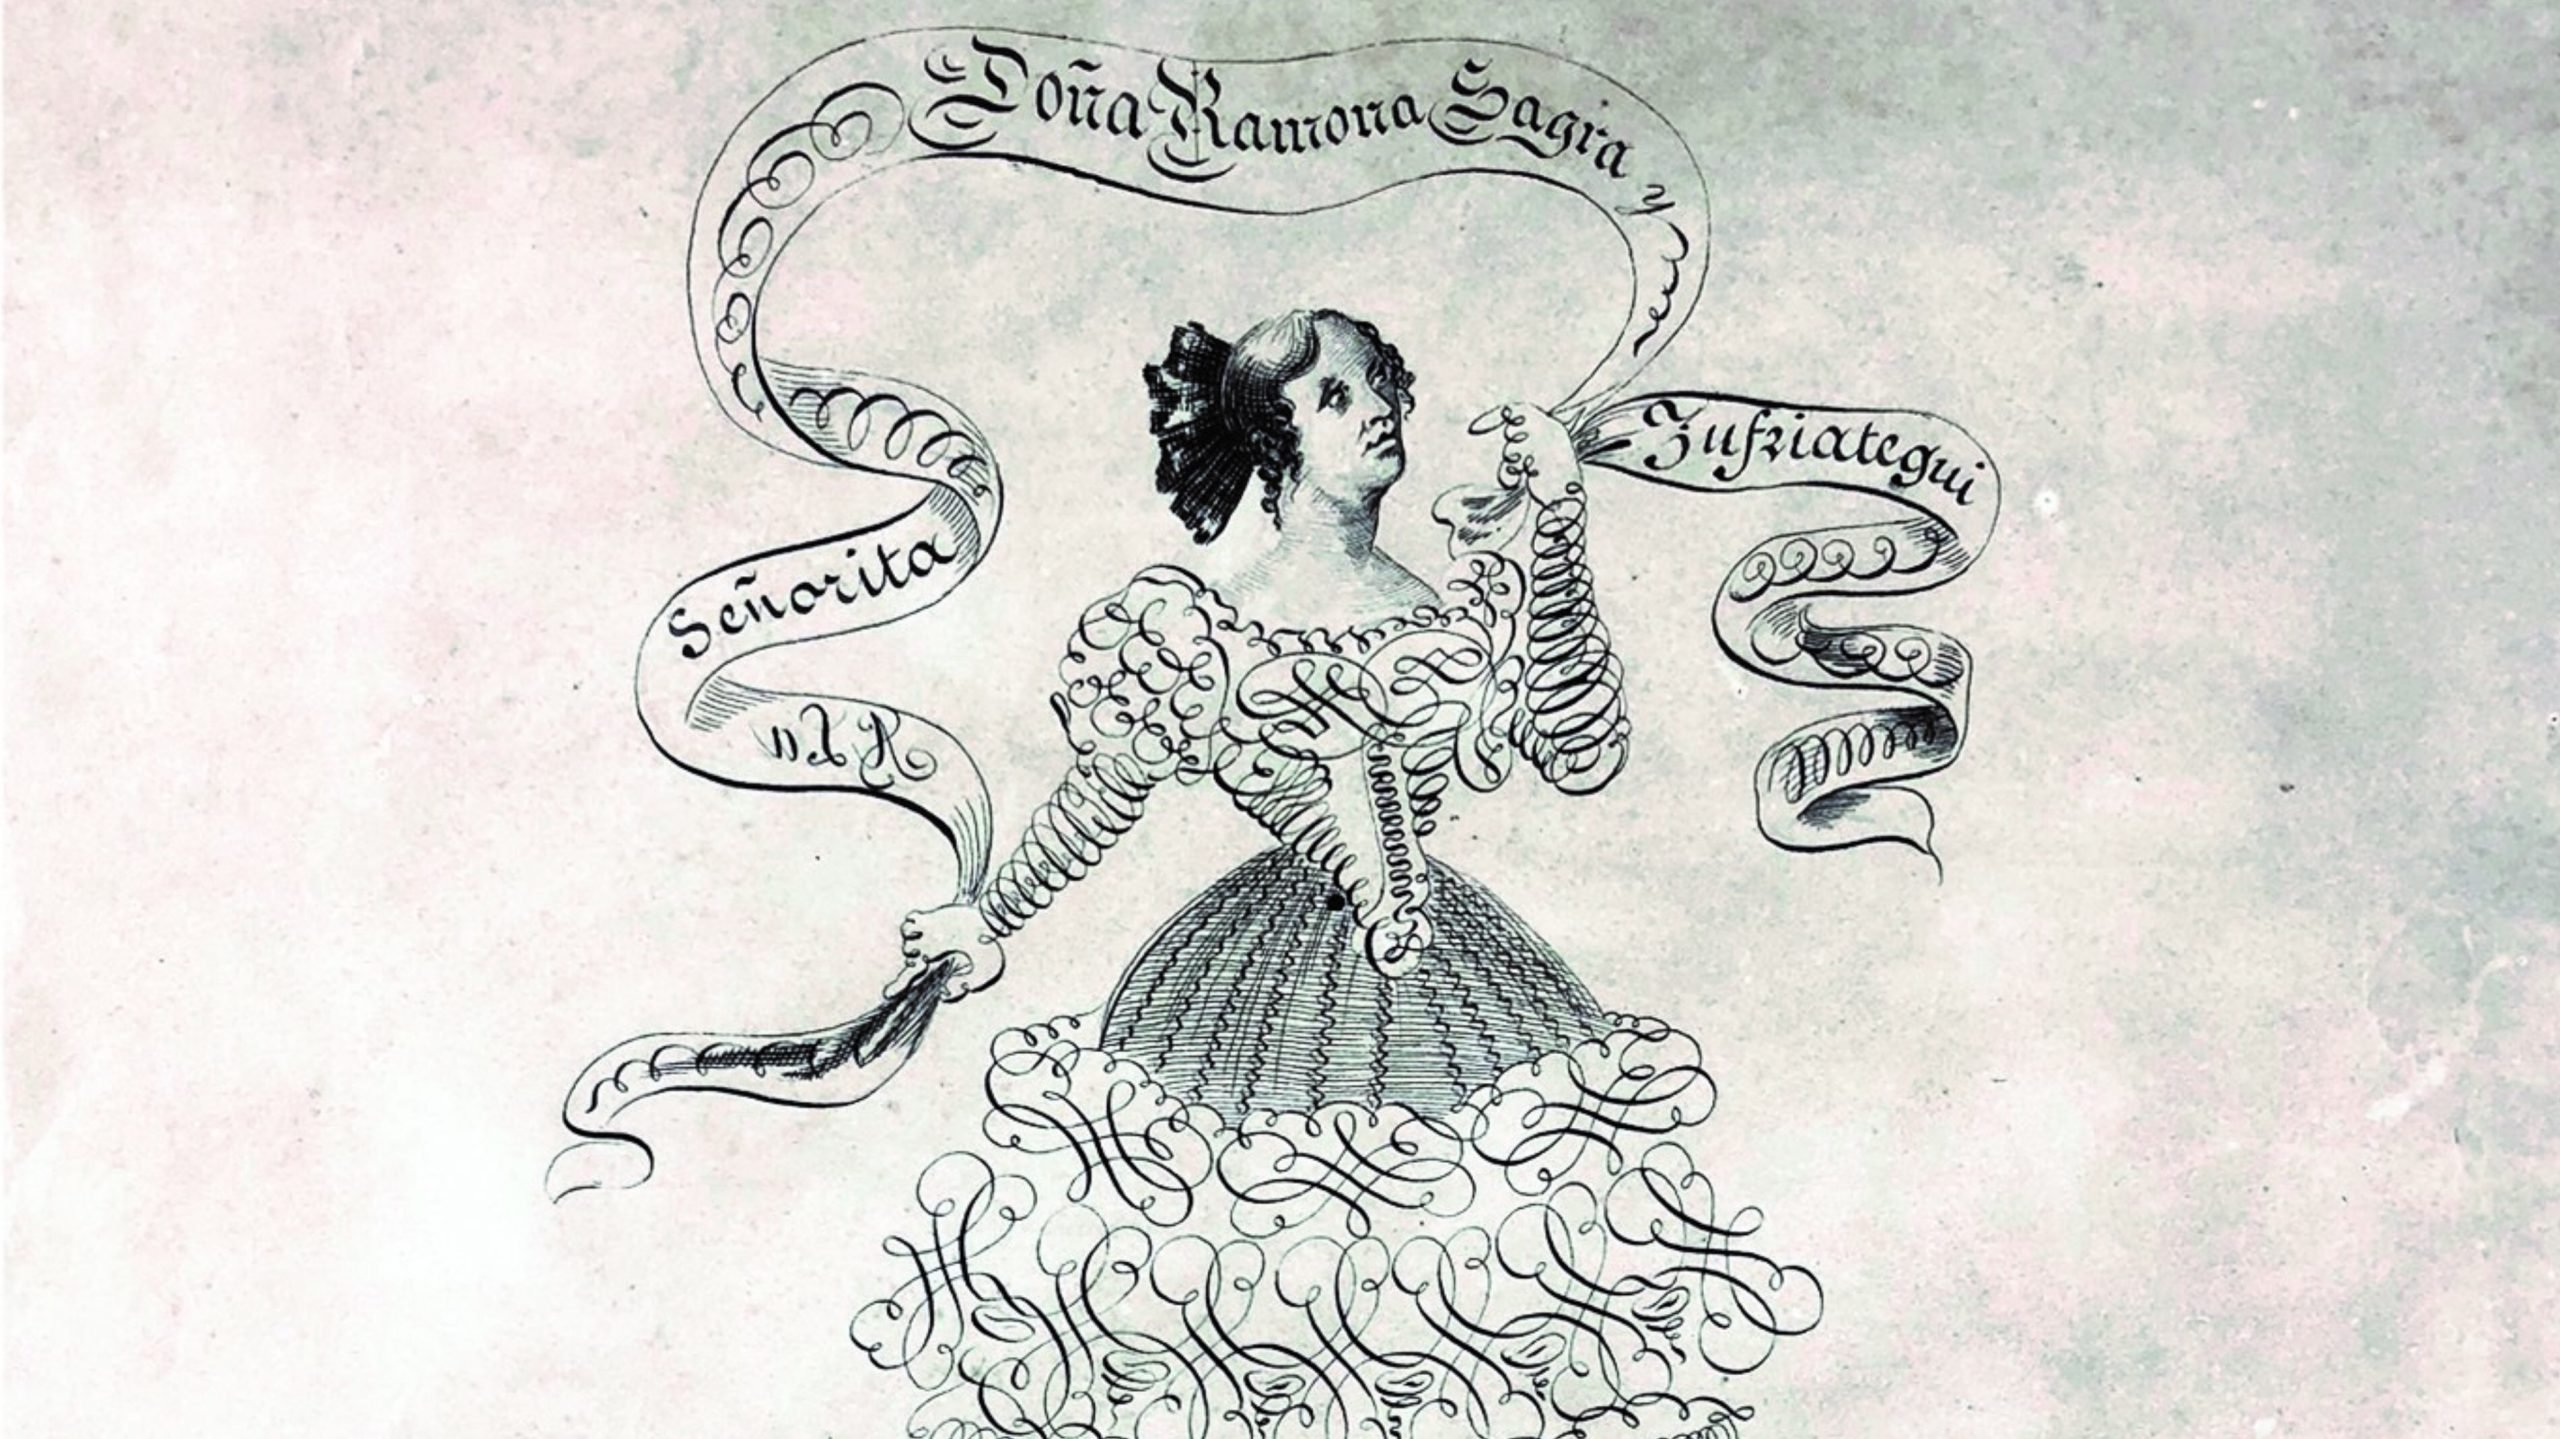 Señorita
Doña Ramona Sagra y
Zufriategui